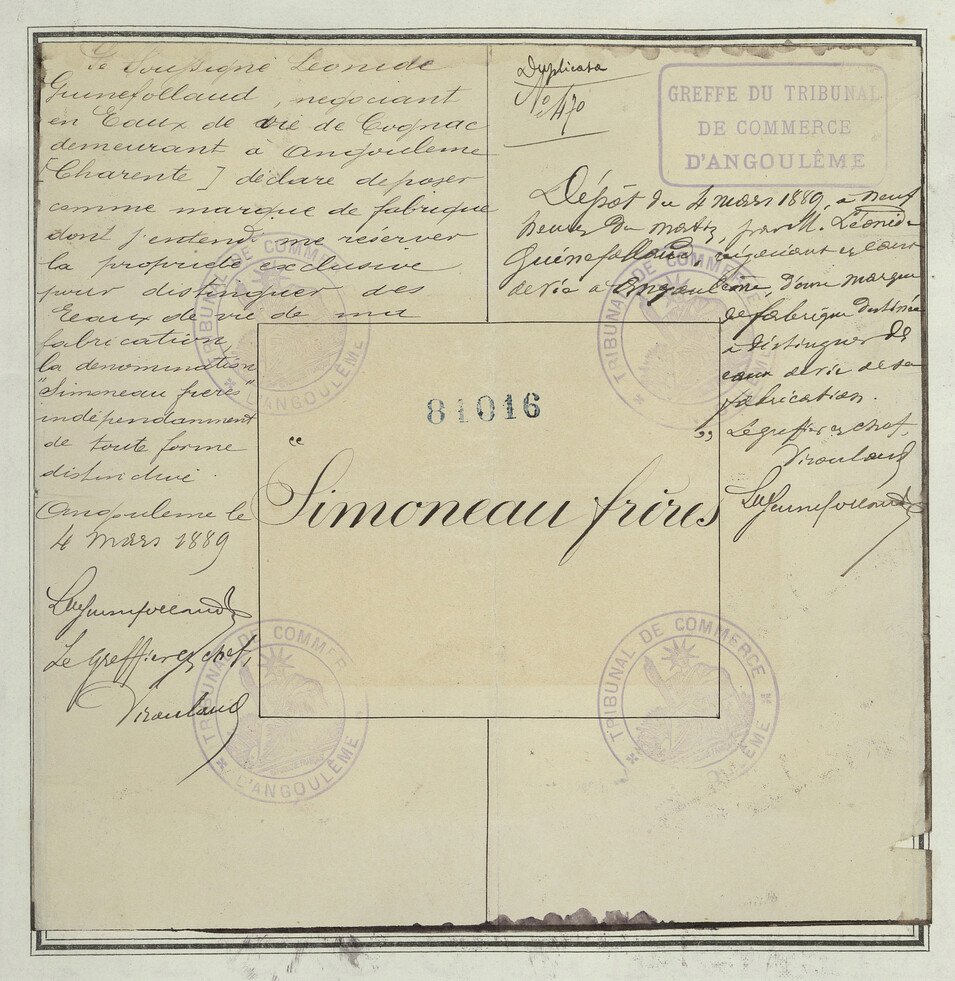 Je Soussigné Léonide
Guinefollaud, négociant
en Eaux de vie de Cognac
demeurant à Angoulême
[Charente] déclare déposer
comme marque de fabrique
dont j'entend me réserver
la propriété exclusive
pour distinguer des
Eaux de vie de ma
fabrication,
la dénomination
"Simoneau frères"
indépendamment
de toute forme
distinctive.
Angoulême le
4 Mars 1889
LGuinefollaud
Le Greffier en chef,
Viroulaud
Duplicata
No 470
GREFFE DU TRIBUNAL
DE COMMERCE
D'ANGOULÊME
Dépôt du 4 mars 1889, à neuf
heures du matin, par M. Léonide
Guinefollaud, négociant en eaux
de vie à Angoulême, d'une marque
de fabrique destinée
à distinguer des
eaux de vie de sa
fabrication.
Le greffier en chef,
Viroulaud
LGuinefollaud
81016
" Simoneau frères "
TRIBUNAL DE COMMERCE
D'ANGOULÊME
TRIBUNAL DE COMMERCE
TRIBUNAL DE COMMERCE
D'ANGOULÊME
TRIBUNAL DE COMMERCE